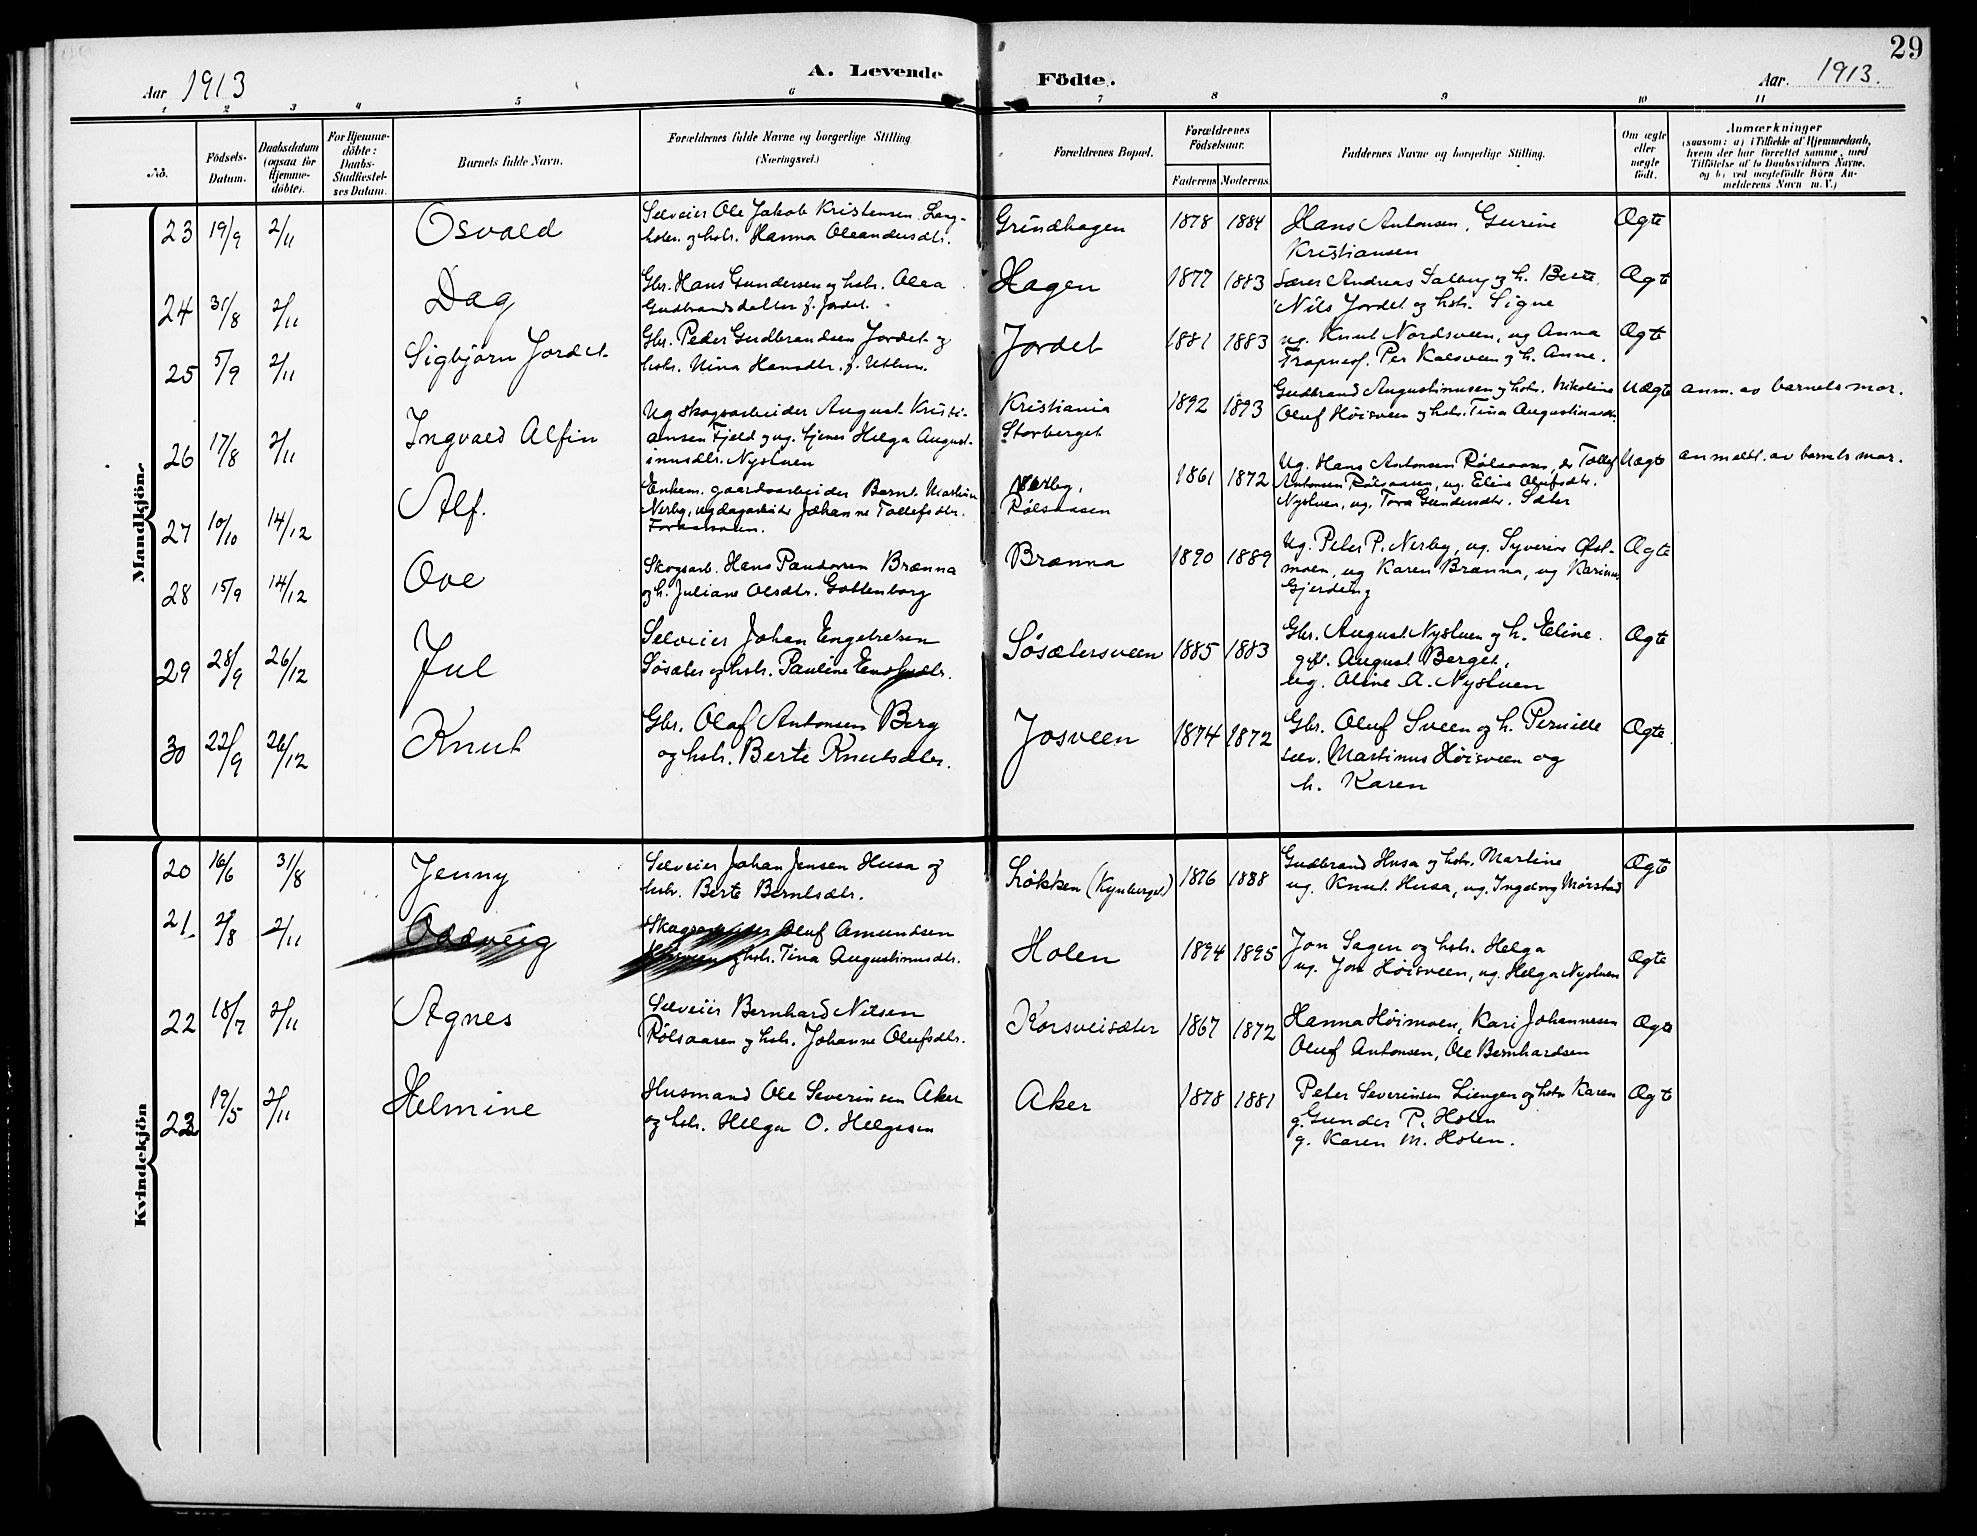 29
Aar 1913
A. Levende Födte.
Aar. 1913.
1 2 3 4 5 6 7 8 9 10 11
No.
Födsels-Datum.
Daabsdatum (ogsaa for Hjemme-döbte).
For Hjemme-döbte: Daabs-Stadfæstel-ses Datum.
Barnets fulde Navn.
Forældrenes fulde Navne og borgerlige Stilling (Næringsvei.)
Forældrenes Bopæl.
Forældrenes Födselsaar.
Faderens Moderens
Faddernes Navne og borgerlige Stilling.
Om ægte eller uægte födt.
Anmærkninger
(saasom: a) i Tilfælde af Hjemmedaab, hvem der har forrettet samme, med Tilföielse af to Daabsvidners Navne, og b) ved uægtefödte Börn An-melderens Navn m. V.)
Mandkjön
23 19/9 2/11 Osvald
Selveier Ole Jakob Kristensen
og hstr. Hanna Oleandersdtr.
Grindhagen 1878 1884
Hans Antonsen, Gurine
Kristiansen
Ægte
24 31/8 2/11 Dag
Gbr. Hans Gundersen og hstr. Olea
Gudbrandsdatter f. Jordet.
Hagen 1877 1883
Lærer Andreas Galberg og h. Berte.
Nils Jordet og hstr. Signe
Ægte
25 5/9 2/11 Sigbjørn Jordet
Gbr. Peder Gudbrandsen Jordet og
hstr. Nina Hansdtr. f.
Jordet 1881 1883
ug. Knut Nordsveen, ug Anna
Per Kalsveen og h. Anne.
Ægte
26 17/8 2/11 Ingvald Alfin
Ug skogsarbeider August Kristi-
ansen Fjeld og ug. tjener Helga August-
inusdtr. Nystuen
Kristiania
Storberget
1892 1893
Gudbrand Augustinusen og hstr. Nikoline
Oluf Høisveen og hstr. Tina Augustinusdtr.
Uægte anm. av barnets mor.
27 10/10 14/12 Alf.
Enkem. gaardsarbeider Bernt Martin
Nerby, ug Johanne Tollefsdtr.
Nerby,
Rølsaasen
1861 1872
Ug. Hans Antonsen Rølsaasen, Tollef
Antonsen Rølsaasen, ug. Eline Olufsdtr.
Nystuen, ug. Tora Gundersdtr. Sæter
Uægte anmeldt. av barnets mor.
28 15/9 14/12 Ove
Skogsarb. Hans Paulsen Brænna
og h. Juliane Olsdtr. Gottenborg
Brænna 1890 1889
Ug. Peter P. Nerby, ug. Syverine
moen, ug Karen Brænna, ug Karinus
Gjerding
Ægte
29 28/9 26/12 Jul
Selveier Johan Engebretsen
Søsæter og hstr. Pauline
Søsætersveen 1885 1883
Gbr. August Nystuen og h. Eline.
August Berget,
ug. Oline A. Nystuen
Ægte
30 22/9 26/12 Knut
Gbr. Olaf Antonsen Berg
og hstr. Berte Knutsdtr.
Josveen 1874 1872
Gbr. Oluf Sveen og h. Pernille
selv. Martinus Høisveen og
h. Karen
Ægte
Kvindekjön
20 16/6 31/8 Jenny
Selveier Johan Jensen Husa og
hstr. Berte Berntsdtr.
Løkken (Kynberget) 1876 1888
Gudbrand Husa og hstr. Martine
ug. Knut Husa, ug. Ingeborg Mørstad
Ægte
21. 2/8 2/11 Oddveig
Oluf Amundsen
og hstr. Tina Augustinusdtr.
Holen 1894 1895
Jon Sagen og hstr. Helga
ug. Jon Høisveen, ug. Helga Nystuen
Ægte
22 18/7 2/11 Agnes
Selveier Bernhard Nilsen
Rølsaasen og hstr. Johanne Olufsdtr.
Korsveisæter 1867 1872
Hanna Høimoen, Kari Johannesen
Oluf Antonsen, Ole Bernhardsen
Ægte
23 19/5 2/11 Helmine
Husmand Ole Severinsen Aker
og hstr. Helga O. Helgesen
Aker 1878 1881
Peter Severinsen Lienger og hstr Karen
g. Gunder P. Holen
g. Karen M. Holen.
Ægte